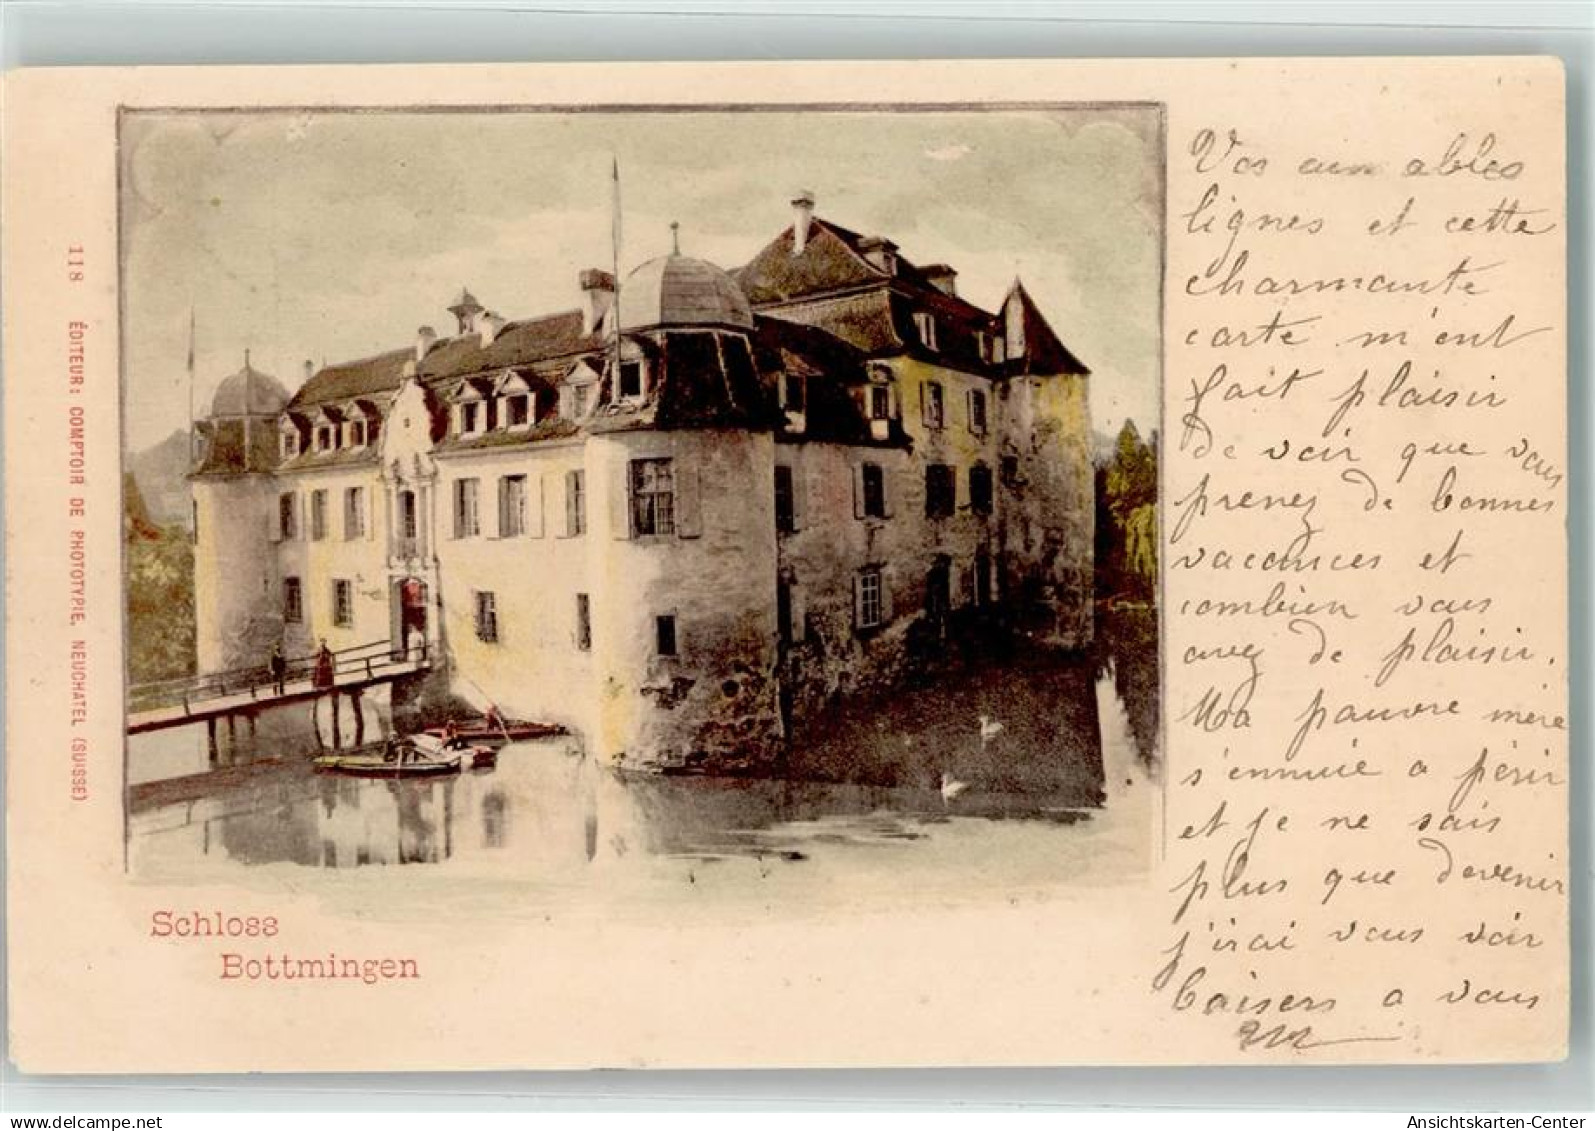 118 ÉDITEUR: COMPTOIR DE PHOTOTYPIE, NEUCHATEL (SUISSE)
Schloss
Bottmingen
Vos aimables
lignes et cette
charmante
carte m'ont
fait plaisir
de voir que vous
prenez de bonnes
vacances et
combien vous
avez de plaisir.
Ma pauvre mère
s'ennuie a périr
et je ne sais
plus que devenir
j'irai vous voir
baisers a vous
delcampe.net
Ansichtskarten-Center